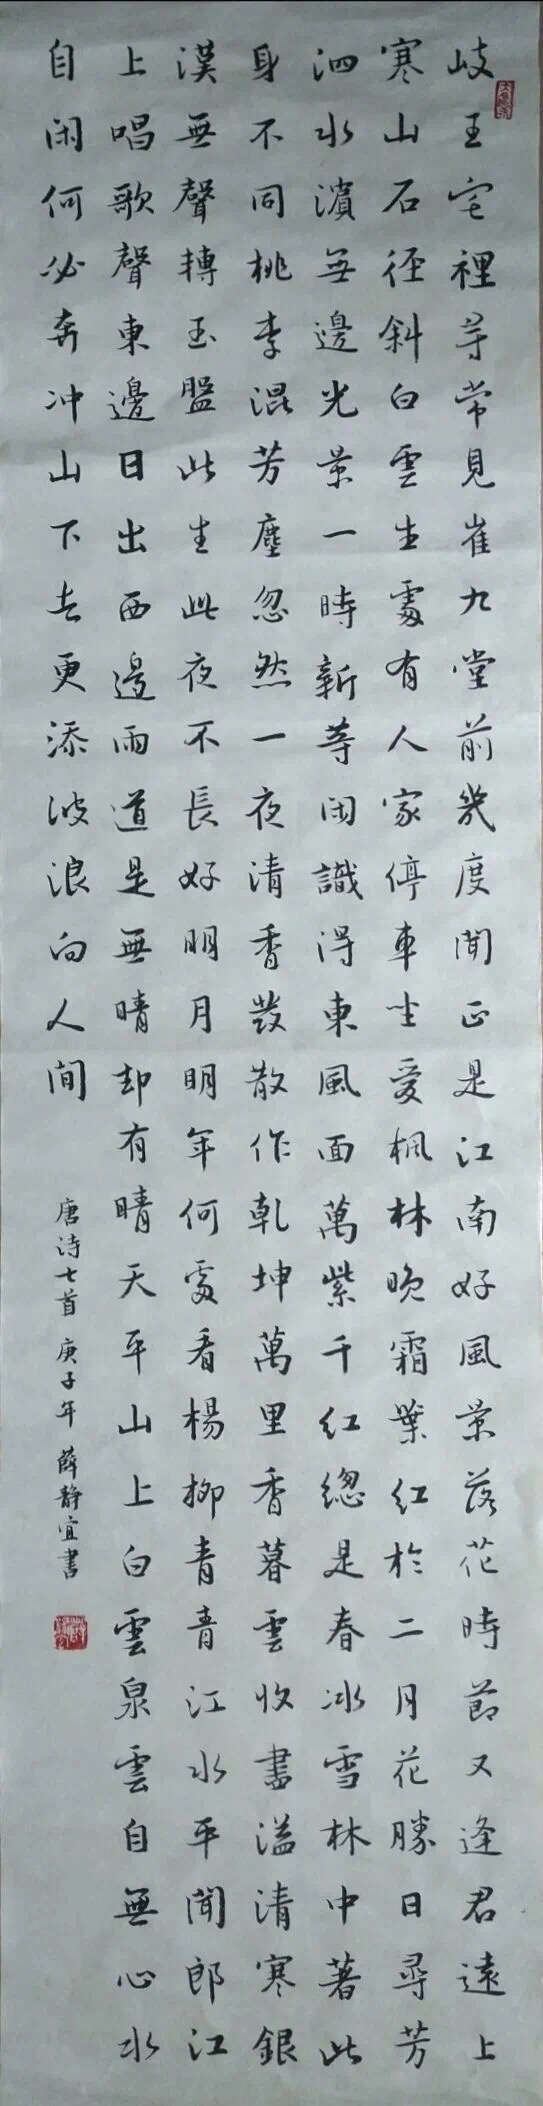 岐王宅裡尋常見崔九堂前幾度聞正是江南好風景落花時節又逢君遠上
寒山石徑斜白雲生處有人家停車坐愛楓林晚霜葉紅於二月花勝日尋芳
泗水濱無邊光景一時新等閑識得東風面萬紫千紅總是春冰雪林中著此
身不同桃李混芳塵忽然一夜清香發散作乾坤萬里香暮雲收盡溢清寒銀
漢無聲轉玉盤此生此夜不長好明月明年何處看楊柳青青江水平聞郎江
上唱歌聲東邊日出西邊雨道是無晴却有晴天平山上白雲泉雲自無心水
自閑何必奔冲山下去更添波浪向人間
唐诗七首 庚子年 薛静宜書